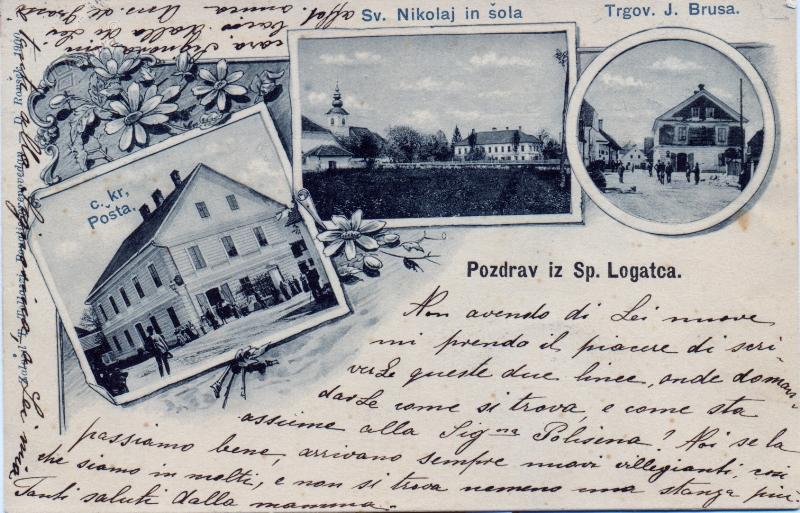 Sv. Nikolaj in šola
Trgov. J. Brusa.
c. kr,
Pošta.
Pozdrav iz Sp. Logatca.
Non avendo di Lei nuove
mi prendo il piacere di scri-
verLe queste due linee, onde doman-
darLe come si trova, e come sta
assieme alla Signa Polisena? Noi se la
passiamo bene, arrivano sempre nuovi villegianti, così
che siamo in molti, e non si trova nemeno una stanza più
Tanti saluti dalla mamma.
e Lei mia
cara
affet. amica